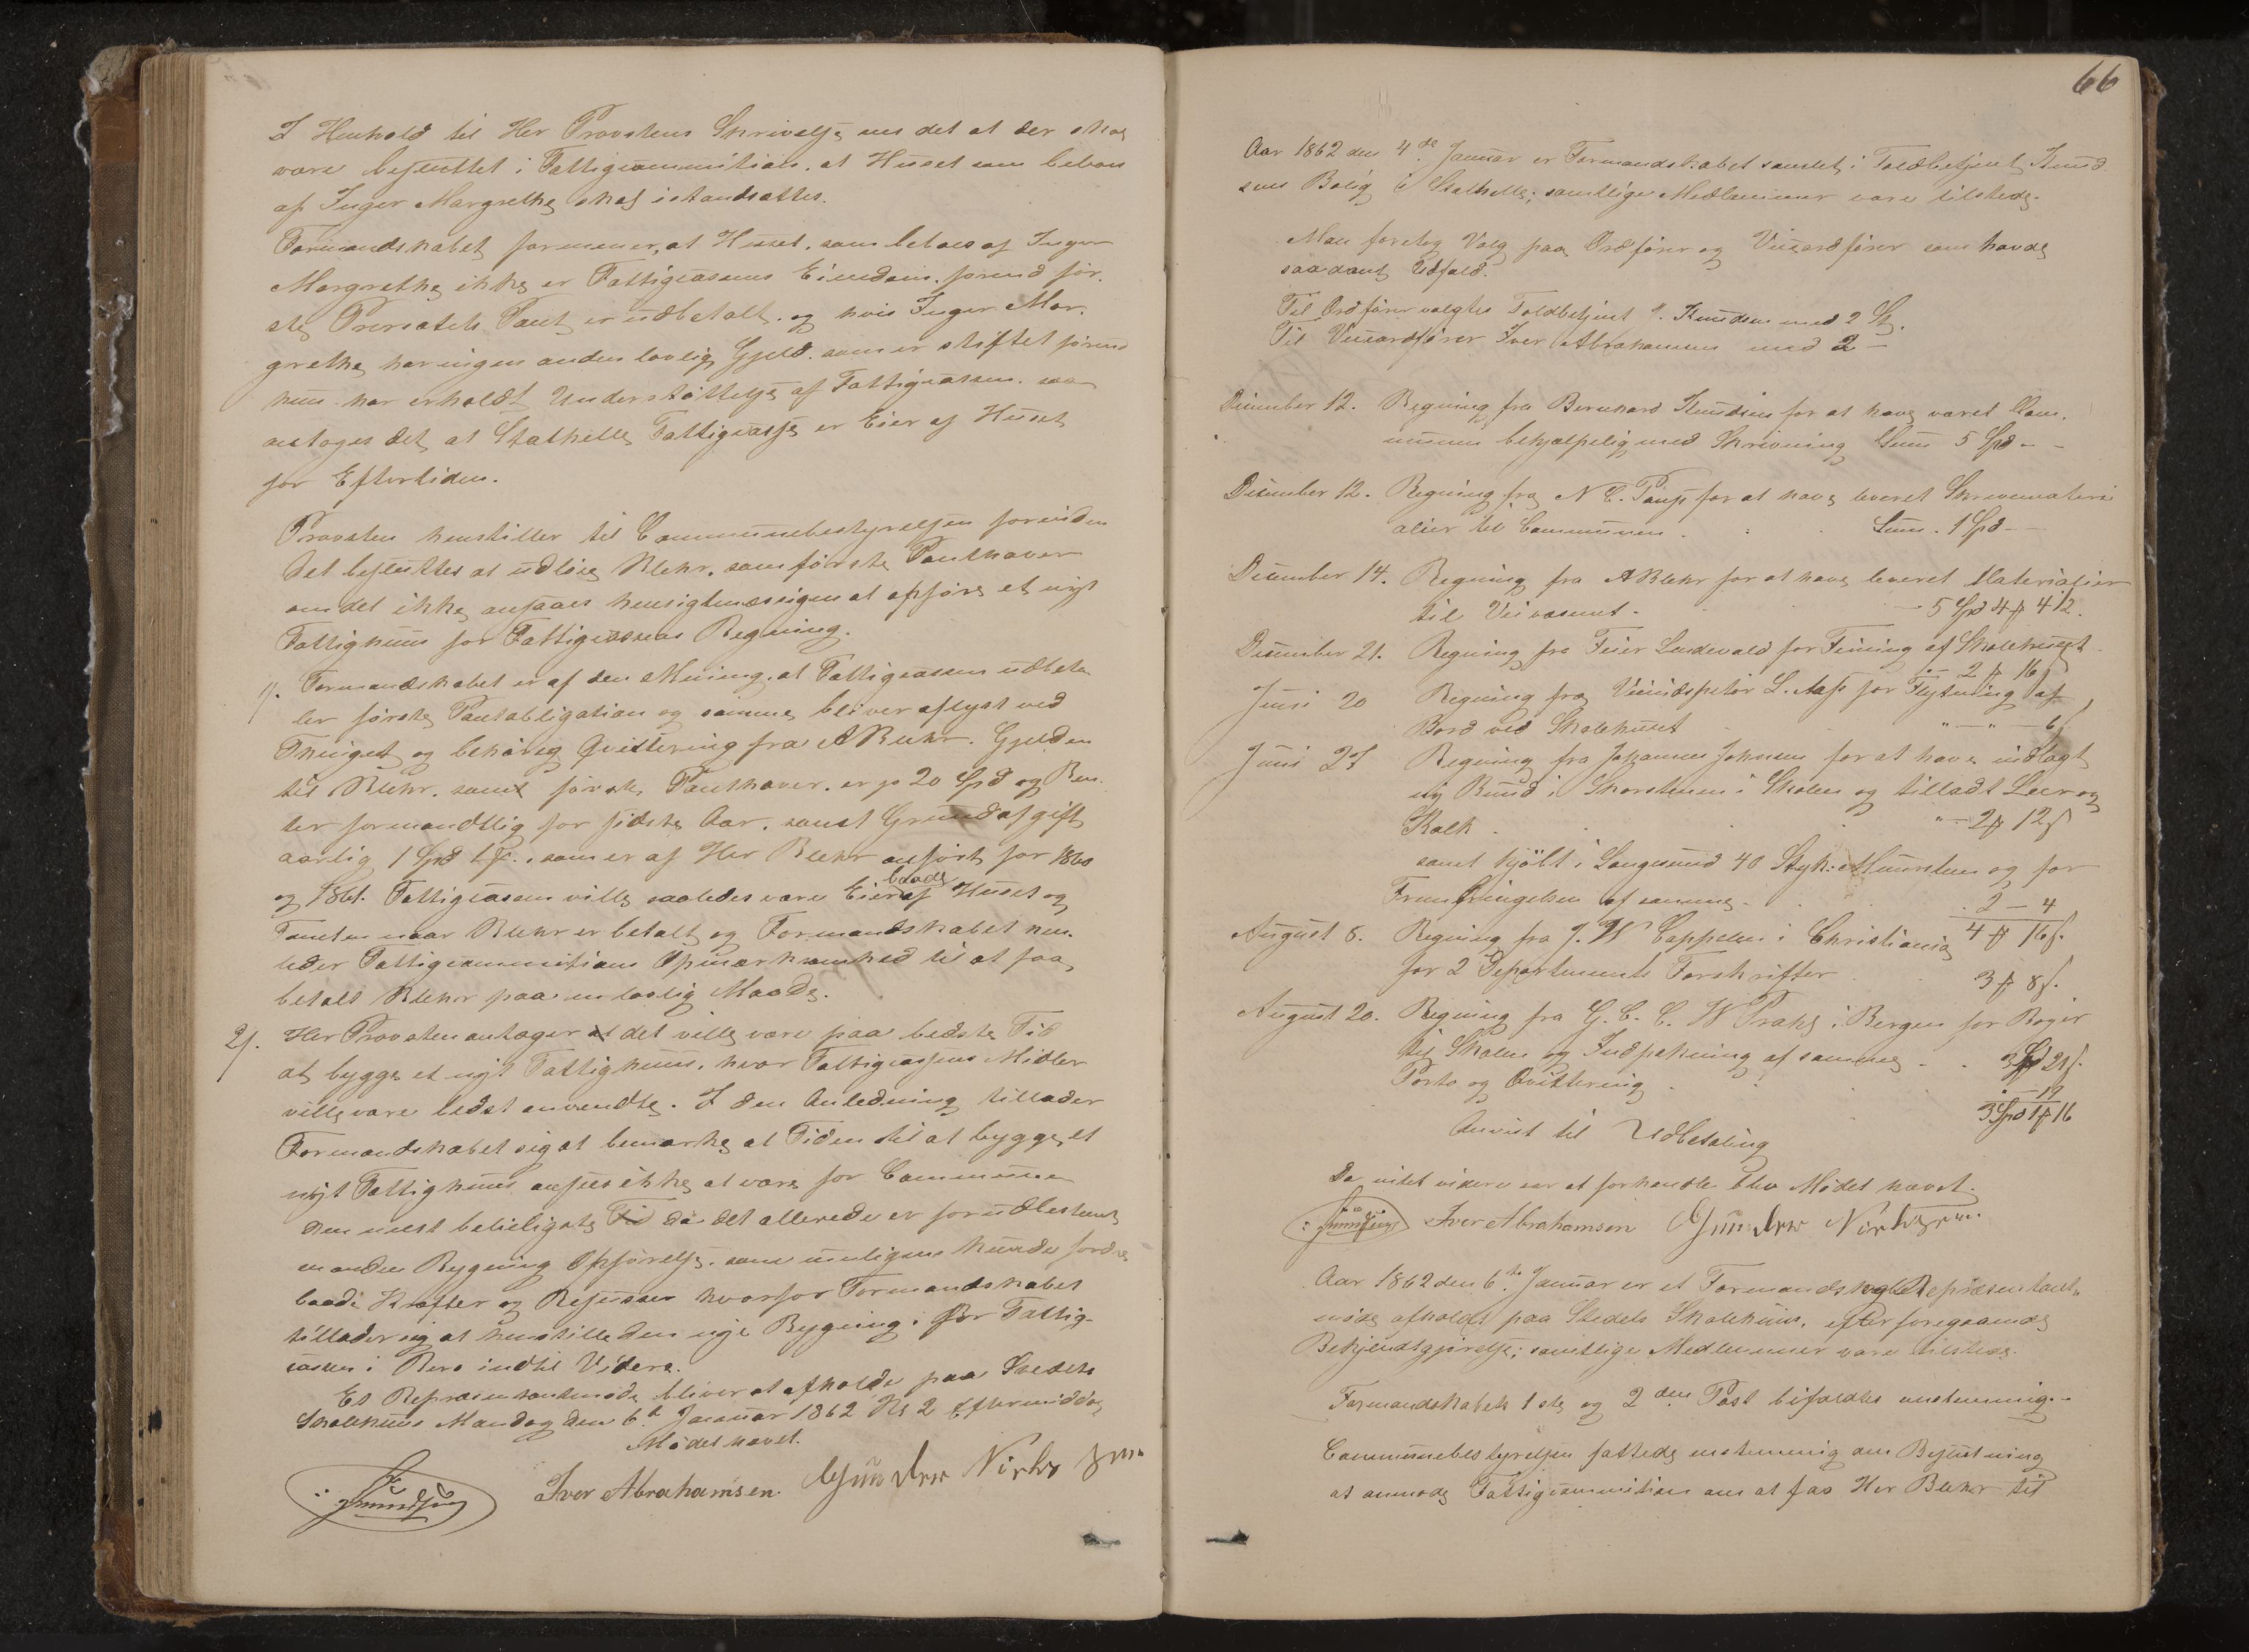 I Henhold til Her Provstens Skrivelse om det at der skal
være besluttet i Fattigcommition, at Huset som beboes
af Inger Margrethe skal istandsættes.
Formandskabet formener, at Huset, som beboes af Inger
Margrethe ikke er Fattigcassens Eiendom, förend för-
ste Prioriatets Pant er udbetalt, og hvis Inger Mar-
grethe har ingen anden lovlig Gjeld, som er stiftet förend
hun har erholdt Understöttelse af Fattigcassen, saa
antages det, at Stathelle Fattigcasse er Eier af Huset
for Eftertiden.
Provsten henstiller til Communebestyrelsen forinden
det besluttes at udlöse Blehr, som förste Panthaver
om det ikke ansaaes hensigtmæssigen at opföre et nyt
Fattighuus for Fattigcassens Regning.
1/. Formandskabet er af den Mening, at Fattigcassen udbeta-
ler förste Pantobligation og samme bliver aflyst ved
Thinget og behörig Qvittering fra A Blehr. Gjelden
til Blehr, som förste Panthaver, er 20 Spd og Ren-
ter formandtlig for sidste Aar, samt Grundafgift
aarlig 1 Spd , som er af Her Blehr anfört for 1860
og 1861. Fattigcassen ville saaledes være Eier af baade Huset og
Tomten naar Blehr er betalt og Formandskabet hen-
leder Fattigcommitions Opmærksomhed til at faa
betalt Blehr paa en lovlig Maade.
2/. Her Provsten antager at det ville være paa bedste Tid
at bygge et nyt Fattighuus, hvor Fattigcassens Midler
ville være bedst anvendte. I den Anledning tillader
Formandskabet sig at bemærke at Tiden til at bygge et
nyt Fattighuus ansees ikke at være for Communen
den mest beleiligste Tid da det allerede er forudbestemt
en anden Bygning Opförelse, som muligens kunde fordre
baade Kræfter og Resusser hvorfor Formandskabet
tillader sig at henstille den nye Bygning for Fattig-
cassen i Bero indtil Videre.
Et Repræsentantmöde bliver at afholde paa Stedets
Skolehuus Mandag den 6te Januar 1862 Kl 2 Eftermiddag
Mödet hævet.
Knudsen Iver Abrahamsen Gunder Nielssen
66
Aar 1862 den 4de Januar er Formandskabet samlet i Toldbetjent Knud-
sens Bolig i Stathelle; samtlige Medlemmer vare tilstede.
Man foretog Valg paa Ordförer og Viceordförer som havde
saadant Udfald.
Til Ordförer valgtes Toldbetjent Knudsen med 2 St.
Til Viceordförer Iver Abrahamsen med 2 —
December 12. Regning fra Bernhard Knudsen for at have været Com-
munen behjælpelig med Skrivning Sum 5 Spd — —
December 12. Regning fra N C. Paus for at have leveret Skrivemateri-
alier til Communen . Sum . 1 Spd —
December 14. Regning fra A Blehr for at have leveret Materialier
til Veivæsenet - 5 Spd 4 12.
December 21. Regning fra Feier Lindevald for Feining af Skolehuset
2 16
Juni 20 Regning fra L. Aass for Flytning af
Bord ved Skolehuset 6
Juni 27 Regning fra Johannes Johnsen for at have indlagt
ny Bund i Skorstenen i Skolen og tilladt Leer og
Kalk 2 12
samt kjöbt i Langesund 40 Styk: Muursteen og for
Frembringelsen af samme - 2 – 4
4 16
August 6. Regning fra J. W Cappelen i Christiania
for 2 Departements Forskrifter 3 8
August 20. Regning fra G. C. C. W Prahl i Bergen for Böger
til Skolen og Indpakning af samme - . 3 Spd 21
Porto og Qvittering 19
3 Spd 1 16
Anvist til Udbetaling
Da intet videre var at forhandle blev Mödet hævet.
Knudsen Iver Abrahamsen Gunder Nielssen
Aar 1862 den 6te Januar er et Formandskab og Repræsentant-
möde afholdt paa Stedets Skolehuus, efter foregaaende
Bekjendtgjörelse; samtlige Medlemmer vare tilstede.
Formandskabets 1ste og 2den Post bifaldtes enstemmig.-
Communebestyrelsen fattede enstemmig om Beslutning
at anmode Fattigcommition om at faa Her Blehr til